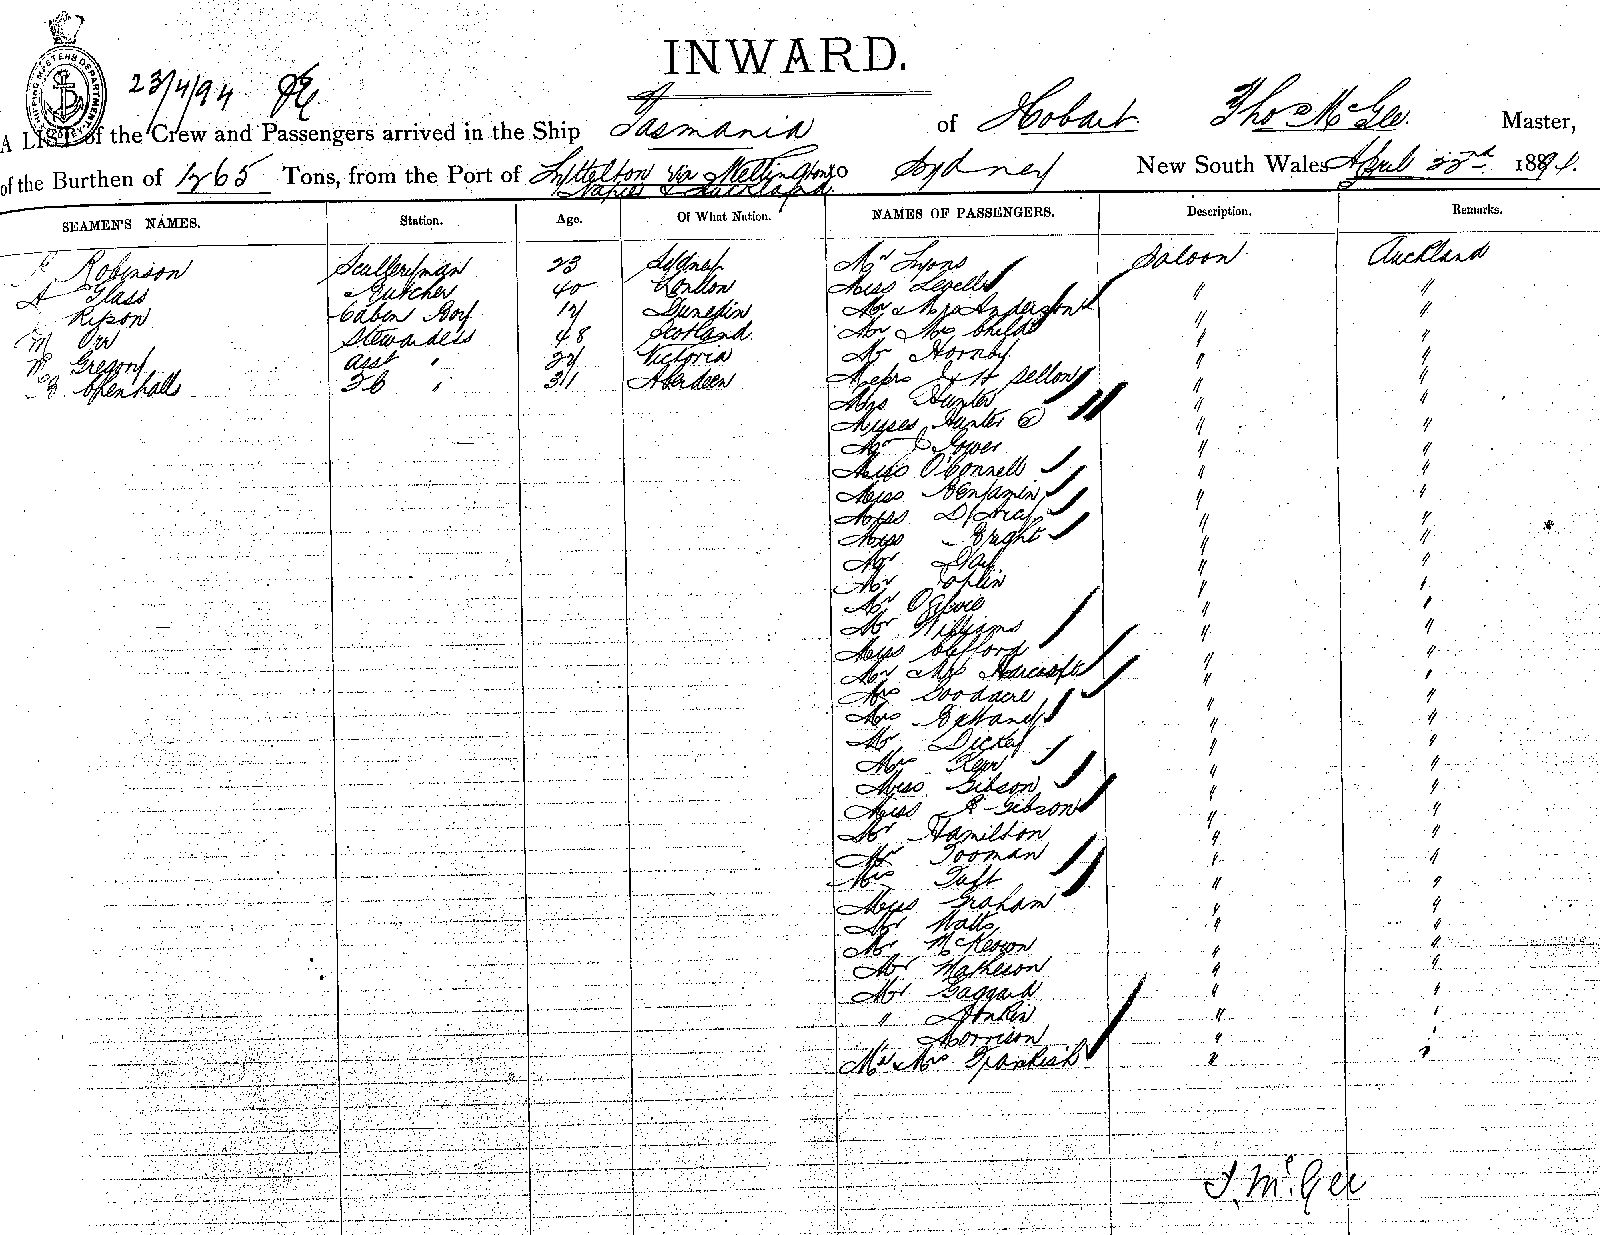 INWARD.
SHIPPING MASTERS DEPARTMENT
23/4/94
A LIST of the Crew and Passengers arrived in the Ship Tasmania of Hobart Thos McGee Master,
of the Burthen of 1265 Tons, from the Port of Lyttelton via Wellington to Sydney New South Wales April 22nd 1894.
Napier & Auckland
SEAMEN'S NAMES. Station. Age. Of What Nation. NAMES OF PASSENGERS. Description. Remarks.
Robinson Sculleryman 23 Sydney Mr Lyons Saloon Auckland
A Glass Butcher 40 London Miss Levell " "
Ripson Cabin Boy 17 Dunedin Mr & Mrs Anderson " "
M Orr Stewardess 48 Scotland Mr Childs " "
Gregory asst " Victoria Mr Hornby " "
Chenhall 3d " 31 Aberdeen Messrs J & H Sellon " "
Mrs Hunter " "
Misses Hunter " "
Mr Gower " "
Miss O'Connell " "
Miss Benjamin " "
Miss D'Arcy " "
Miss Bright " "
Mr Day " "
Mr Joplin " "
Mr Ogilvie " "
Mr Williams " "
Miss Clifford " "
Mr & Mrs " "
Mrs Goodacre " "
Mrs " "
Mr Dickey " "
Mr Kerr " "
Miss Gibson " "
Miss R Gibson " "
Mr Hamilton " "
Mr Tooman " "
Mrs Taft " "
Miss Graham " "
Mr Watts " "
Mr McKeown " "
Mr Matheson " "
Mr Gaggard " "
" Jonkin " "
" Morrison " "
Mr & Mrs " "
T. McGee